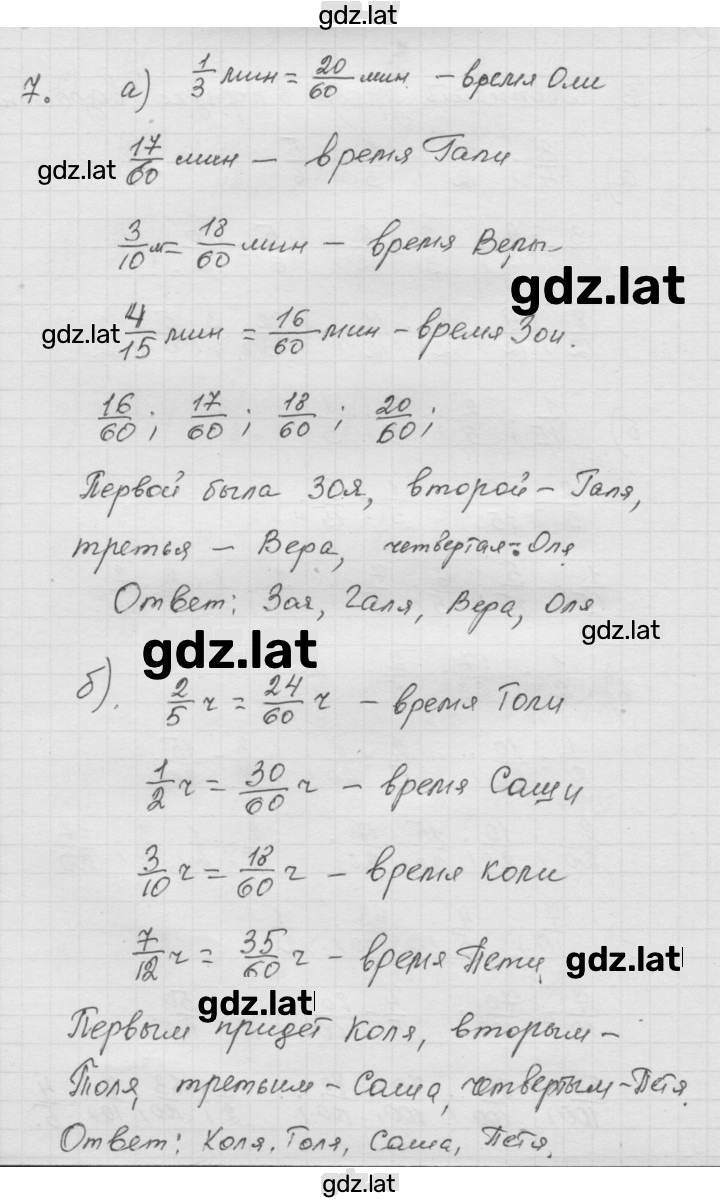 gdz.lat
7. а) 1/3 мин = 20/60 мин - время Оли
gdz.lat 17/60 мин - время Гали
3/10 м = 18/60 мин - время Веры
gdz.lat
gdz.lat 4/15 мин = 16/60 мин - время Зои.
16/60; 17/60; 18/60; 20/60;
Первой была Зоя, второй - Галя,
третья - Вера, четвертая - Оля
Ответ: Зоя, Галя, Вера, Оля
gdz.lat
gdz.lat
б). 2/5 ч = 24/60 ч - время Толи
1/2 ч = 30/60 ч - время Саши
3/10 ч = 18/60 ч - время Коли
7/12 ч = 35/60 ч - время Пети
gdz.lat
gdz.lat
Первым придет Коля, вторым -
Толя, третьим - Саша, четвертым - Петя.
Ответ: Коля, Толя, Саша, Петя.
gdz.lat